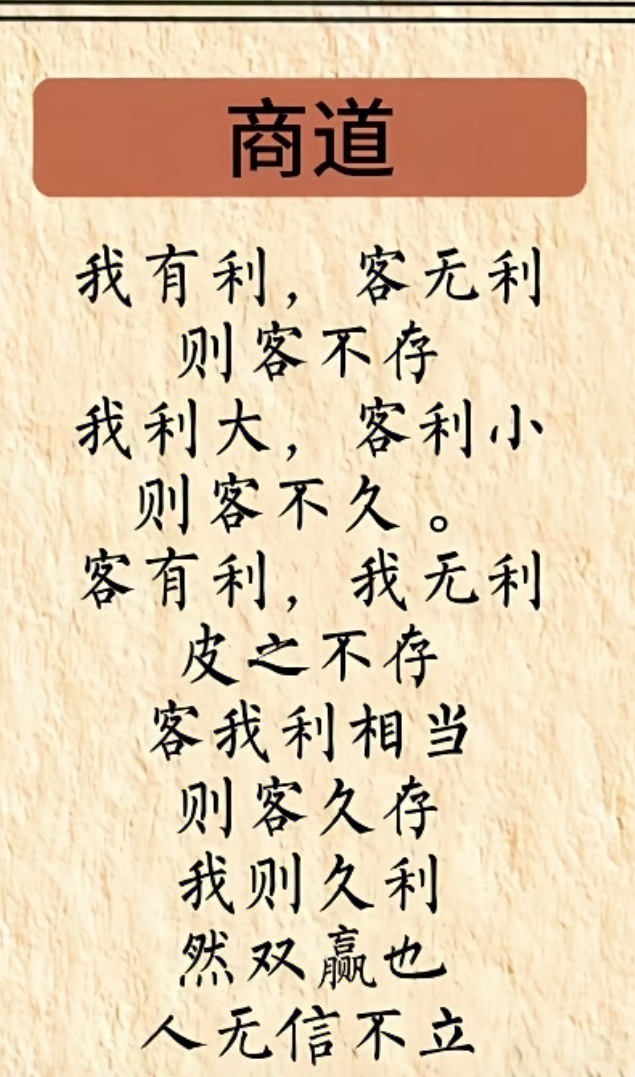 商道
我有利，客无利
则客不存
我利大，客利小
则客不久。
客有利，我无利
皮之不存
客我利相当
则客久存
我则久利
然双赢也
人无信不立